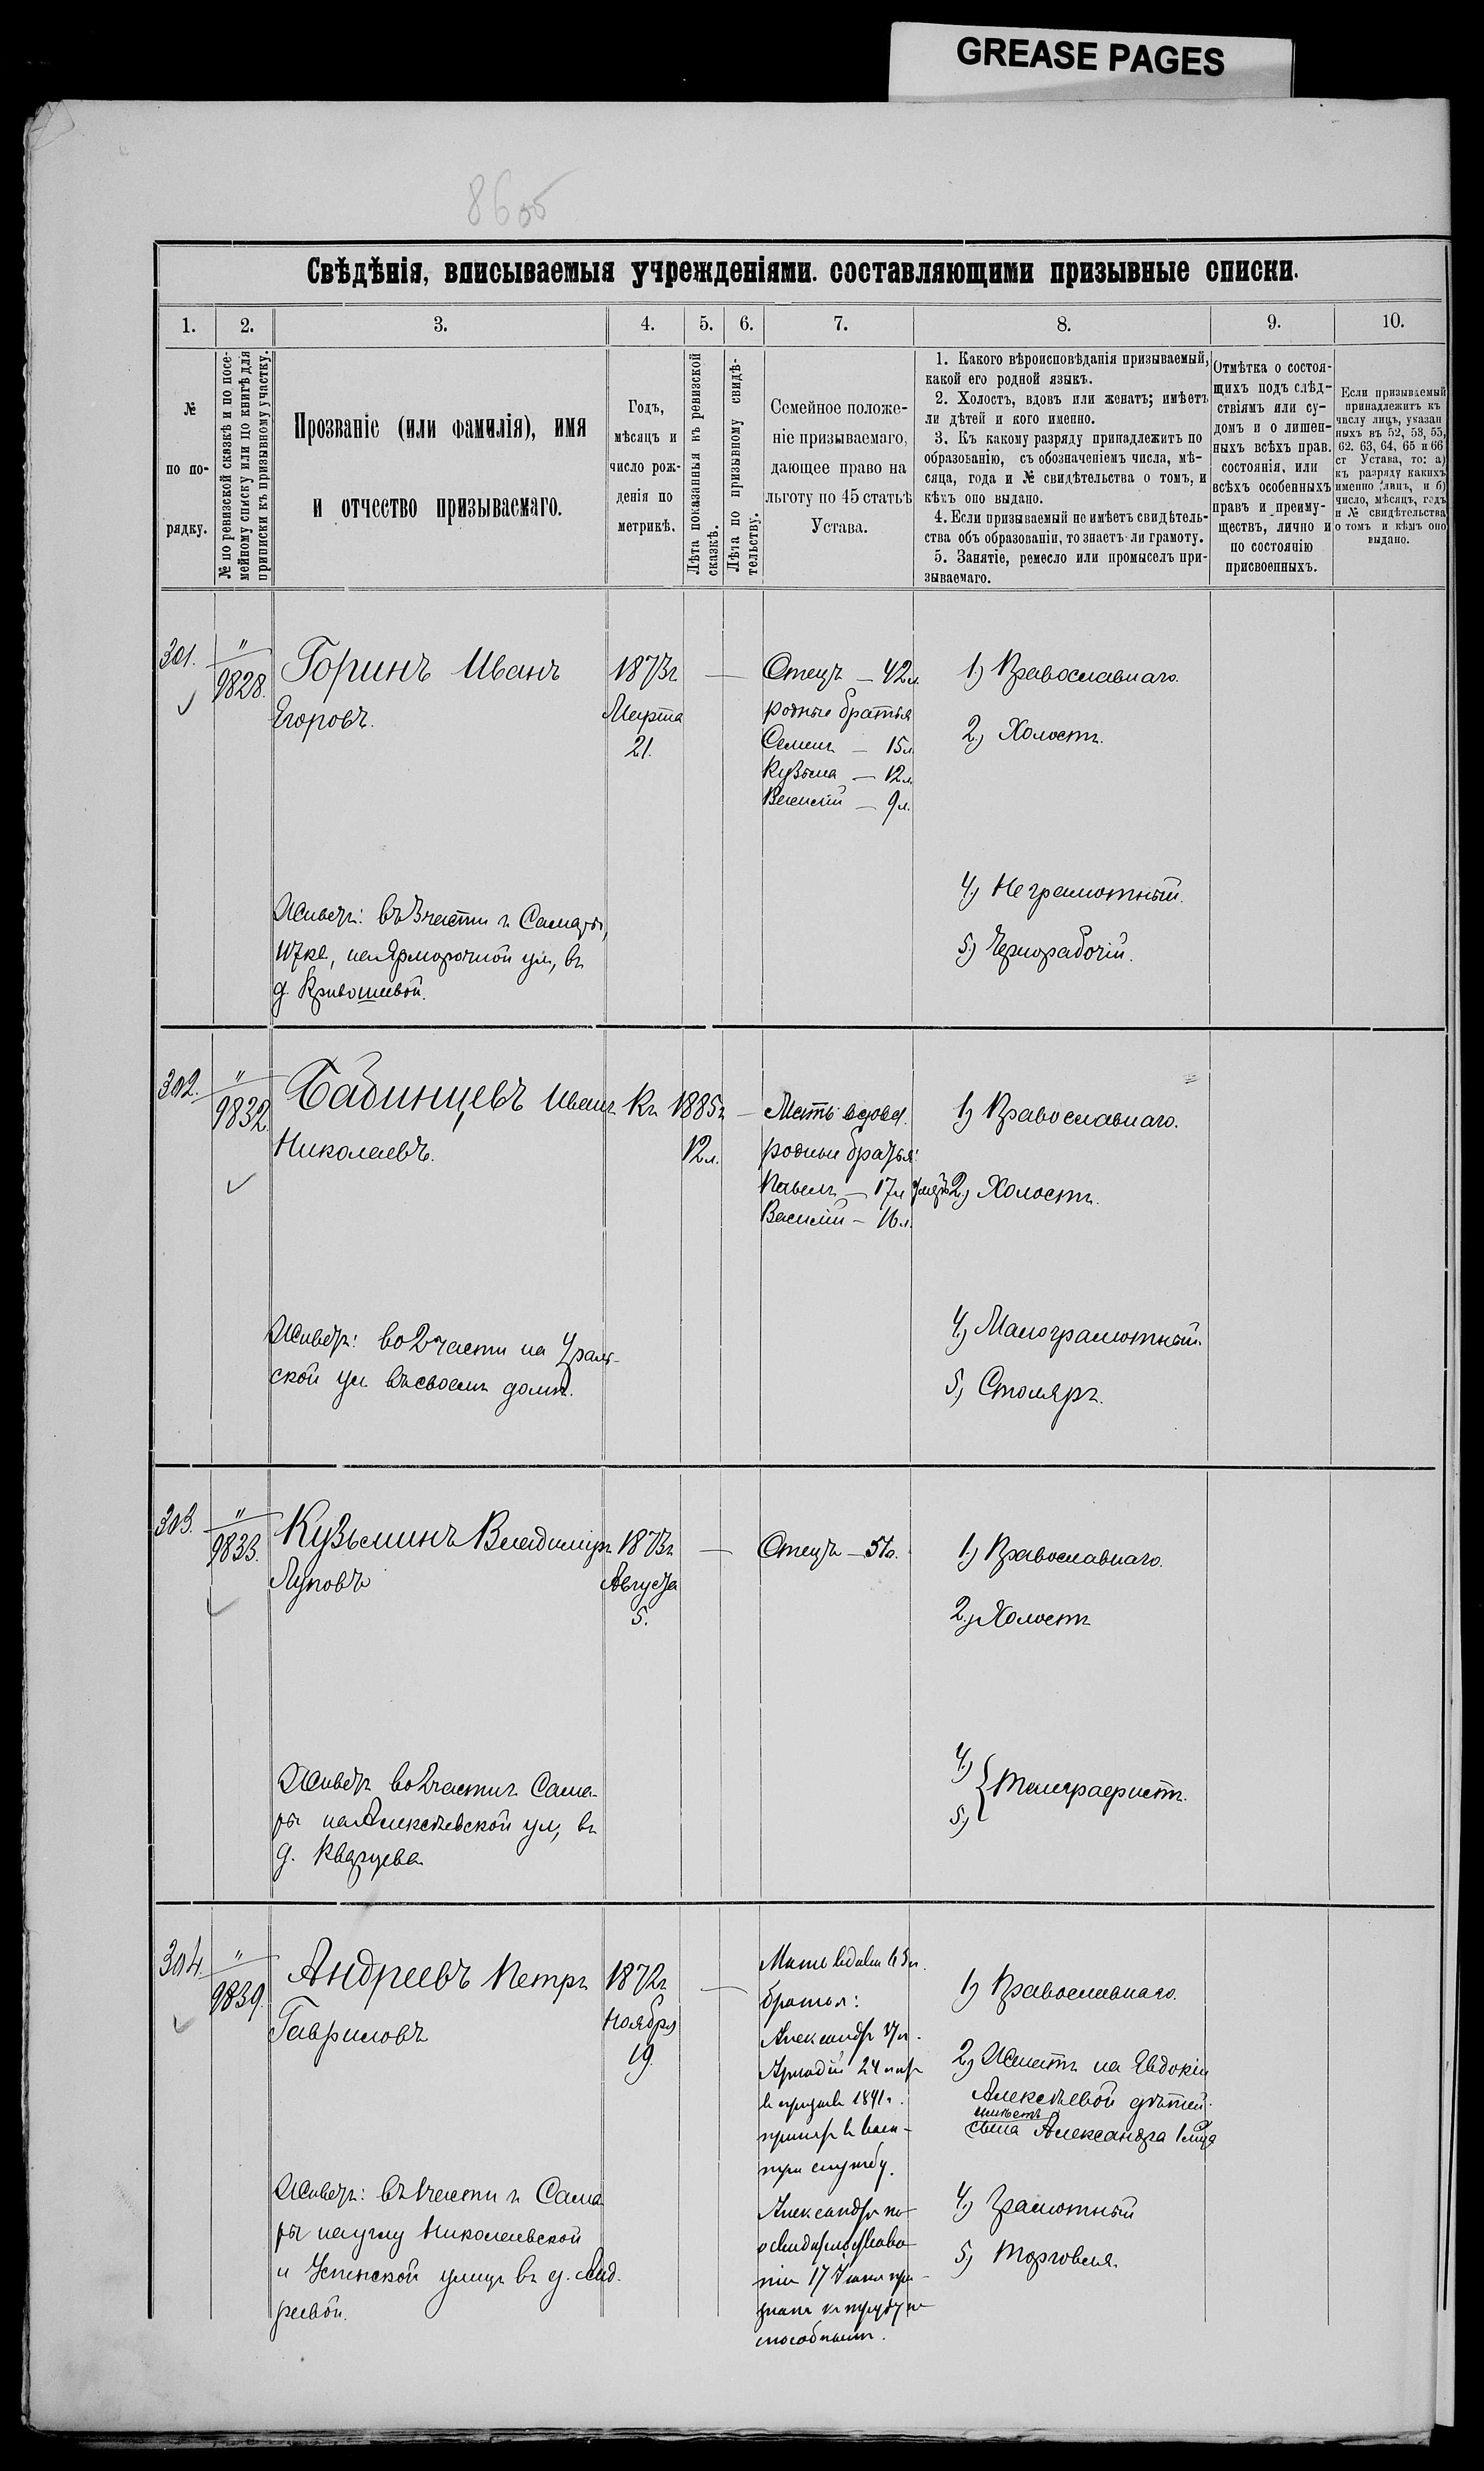 GREASE PAGES
Свѣдѣнія, вписываемыя учрежденіями. составляющими призывные списки.
1. 2. 3. 4. 5. 6. 7. 8. 9. 10.
№
по по-
рядку.
№ по ревизской сказкѣ и по посе-
мейному списку или по книгѣ для
приписки къ призывному участку.
Прозваніе (или фамилія), имя
и отчество призываемаго.
Годъ,
мѣсяцъ и
число рож-
денія по
метрикѣ.
Лѣта показанныя къ ревизской
сказкѣ.
Лѣта по призывному свидѣ-
тельству.
Семейное положе-
ніе призываемаго,
дающее право на
льготу по 45 статьѣ
Устава.
1. Какого вѣроисповѣданія призываемый,
какой его родной языкъ.
2. Холостъ, вдовъ или женатъ; имѣетъ
ли дѣтей и кого именно.
3. Къ какому разряду принадлежитъ по
образованію, съ обозначеніемъ числа, мѣ-
сяца, года и № свидѣтельства о томъ, и
кѣмъ оно выдано.
4. Если призываемый не имѣетъ свидѣтель-
ства объ образованіи, то знаетъ ли грамоту.
5. Занятіе, ремесло или промыселъ при-
зываемаго.
Отмѣтка о состоя-
щихъ подъ слѣд-
ствіямъ или су-
домъ и о лишен-
ныхъ всѣхъ прав.
состоянія, или
всѣхъ особенныхъ
правъ и преиму-
ществъ, лично и
по состоянію
присвоенныхъ.
Если призываемый
принадлежитъ къ
числу лицъ, указан
ныхъ въ 52, 53, 55,
62. 63, 64, 65 и 66
ст Устава, то: а)
къ разряду какихъ
именно лицъ, и б)
число, мѣсяцъ, годъ
и № свидѣтельства
о томъ и кѣмъ оно
выдано.
301.
"
9828.
Горинъ Иванъ
Егоровъ.
1873г
Марта
21.
Отецъ — 42л.
родные братья
Семенъ — 15л
Кузьма — 12л.
Василій — 9л.
1) Православнаго.
2) Холостъ.
4) Неграмотный.
5) Чернорабочій.
Живетъ: въ 3 части г Самары,
на Ярморочной ул, въ
д. Кривошеевой.
302.
"
9832.
Бабинцевъ Иванъ
Николаевъ.
Къ 1885г
12л.
Мать вдова.
родные братья:
Павелъ — 17л умеръ
Василій — 16л.
1) Православнаго.
2) Холостъ.
4) Малограмотный.
5) Столяръ.
Живетъ: во 2 части на Ураль-
ской ул въ своемъ домѣ.
303.
"
9833.
Кузьминъ Владиміръ
Луповъ
1873г
Августа
5.
Отецъ — 51л.
1) Православнаго.
2) Холостъ
4)
5)
Телеграфистъ.
Живетъ во 2 части г. Сама-
ры на Алексѣевской ул, въ
д. Кварцева
304.
"
9839.
Андреевъ Петръ
Гавриловъ
1872г
Ноября
19.
Мать вдова
братья:
Александръ
Аркадій 24
въ призывѣ 1891г.
принятъ въ воен-
ную службу.
Александръ по
освидѣтельствова-
нію 17 Іюня при-
знанъ къ труду не
способнымъ.
1) Православнаго.
2) Женатъ на Евдокіи
Алексѣевой дѣтей
имѣетъ
сына Александра 1 года
4) Грамотный
5) Торговля.
Живетъ: въ 1 части г Сама
ры на углу Николаевской
и Успенской улицъ въ д. Анд-
реевой.